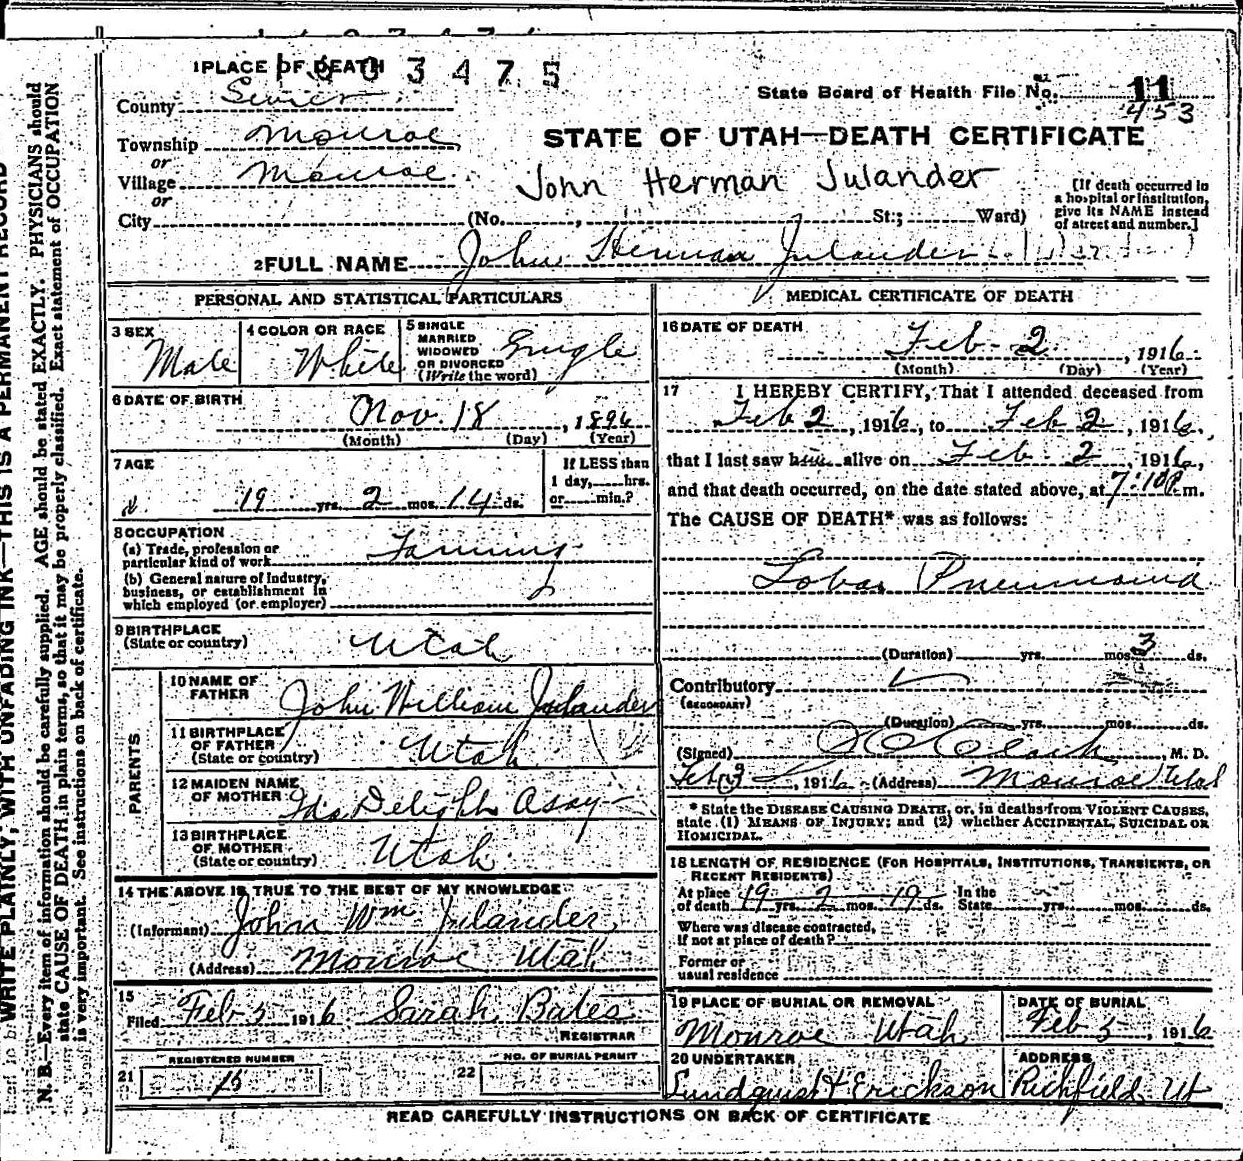 1 PLACE OF DEATH
1603475
County Sevier
State Board of Health File No. 11
453
Township Monroe
STATE OF UTAH—DEATH CERTIFICATE
or
Village Monroe
John Herman Julander
or
City (No. , St.; Ward)
[If death occurred in a hospital or institution, give its NAME instead of street and number.]
2 FULL NAME John Herman Julander
PERSONAL AND STATISTICAL PARTICULARS
3 SEX
Male
4 COLOR OR RACE
White
5 SINGLE MARRIED WIDOWED OR DIVORCED (Write the word)
Single
6 DATE OF BIRTH
Nov. 18, 1896
(Month) (Day) (Year)
7 AGE
19 yrs. 2 mos. 14 ds.
If LESS than 1 day, hrs. or min.?
8 OCCUPATION
(a) Trade, profession or particular kind of work Farming
(b) General nature of Industry, business, or establishment in which employed (or employer)
9 BIRTHPLACE
(State or country) Utah
PARENTS
10 NAME OF FATHER John William Julander
11 BIRTHPLACE OF FATHER (State or country) Utah
12 MAIDEN NAME OF MOTHER Ida Delight Asay
13 BIRTHPLACE OF MOTHER (State or country) Utah
14 THE ABOVE IS TRUE TO THE BEST OF MY KNOWLEDGE
(Informant) John Wm Julander
(Address) Monroe Utah
15
Filed Feb 5 1916 Sarah Bates
REGISTRAR
REGISTERED NUMBER
21 15
NO. OF BURIAL PERMIT
22
MEDICAL CERTIFICATE OF DEATH
16 DATE OF DEATH
Feb 2, 1916
(Month) (Day) (Year)
17 I HEREBY CERTIFY, That I attended deceased from
Feb 2, 1916, to Feb 2, 1916,
that I last saw him alive on Feb. 2, 1916,
and that death occurred, on the date stated above, at 7:10 P.m.
The CAUSE OF DEATH* was as follows:
Lobar Pneumonia
(Duration) yrs. mos. 3 ds.
Contributory
(SECONDARY)
(Duration) yrs. mos. ds.
(Signed) M. D.
Feb 3, 1916 (Address) Monroe Utah
* State the DISEASE CAUSING DEATH, or, in deaths from VIOLENT CAUSES,
state (1) MEANS OF INJURY; and (2) whether ACCIDENTAL, SUICIDAL OR
HOMICIDAL.
18 LENGTH OF RESIDENCE (FOR HOSPITALS, INSTITUTIONS, TRANSIENTS, OR
RECENT RESIDENTS)
At place of death 19 yrs. 2 mos. 19 ds. In the State yrs. mos. ds.
Where was disease contracted,
if not at place of death?
Former or
usual residence
19 PLACE OF BURIAL OR REMOVAL
Monroe Utah
DATE OF BURIAL
Feb 5, 1916
20 UNDERTAKER
Lundquist & Erickson
ADDRESS
Richfield, Ut
READ CAREFULLY INSTRUCTIONS ON BACK OF CERTIFICATE
WRITE PLAINLY, WITH UNFADING INK—THIS IS A PERMANENT RECORD
N. B.—Every item of information should be carefully supplied. AGE should be stated EXACTLY. PHYSICIANS should
state CAUSE OF DEATH in plain terms, so that it may be properly classified. Exact statement of OCCUPATION
is very important. See instructions on back of certificate.